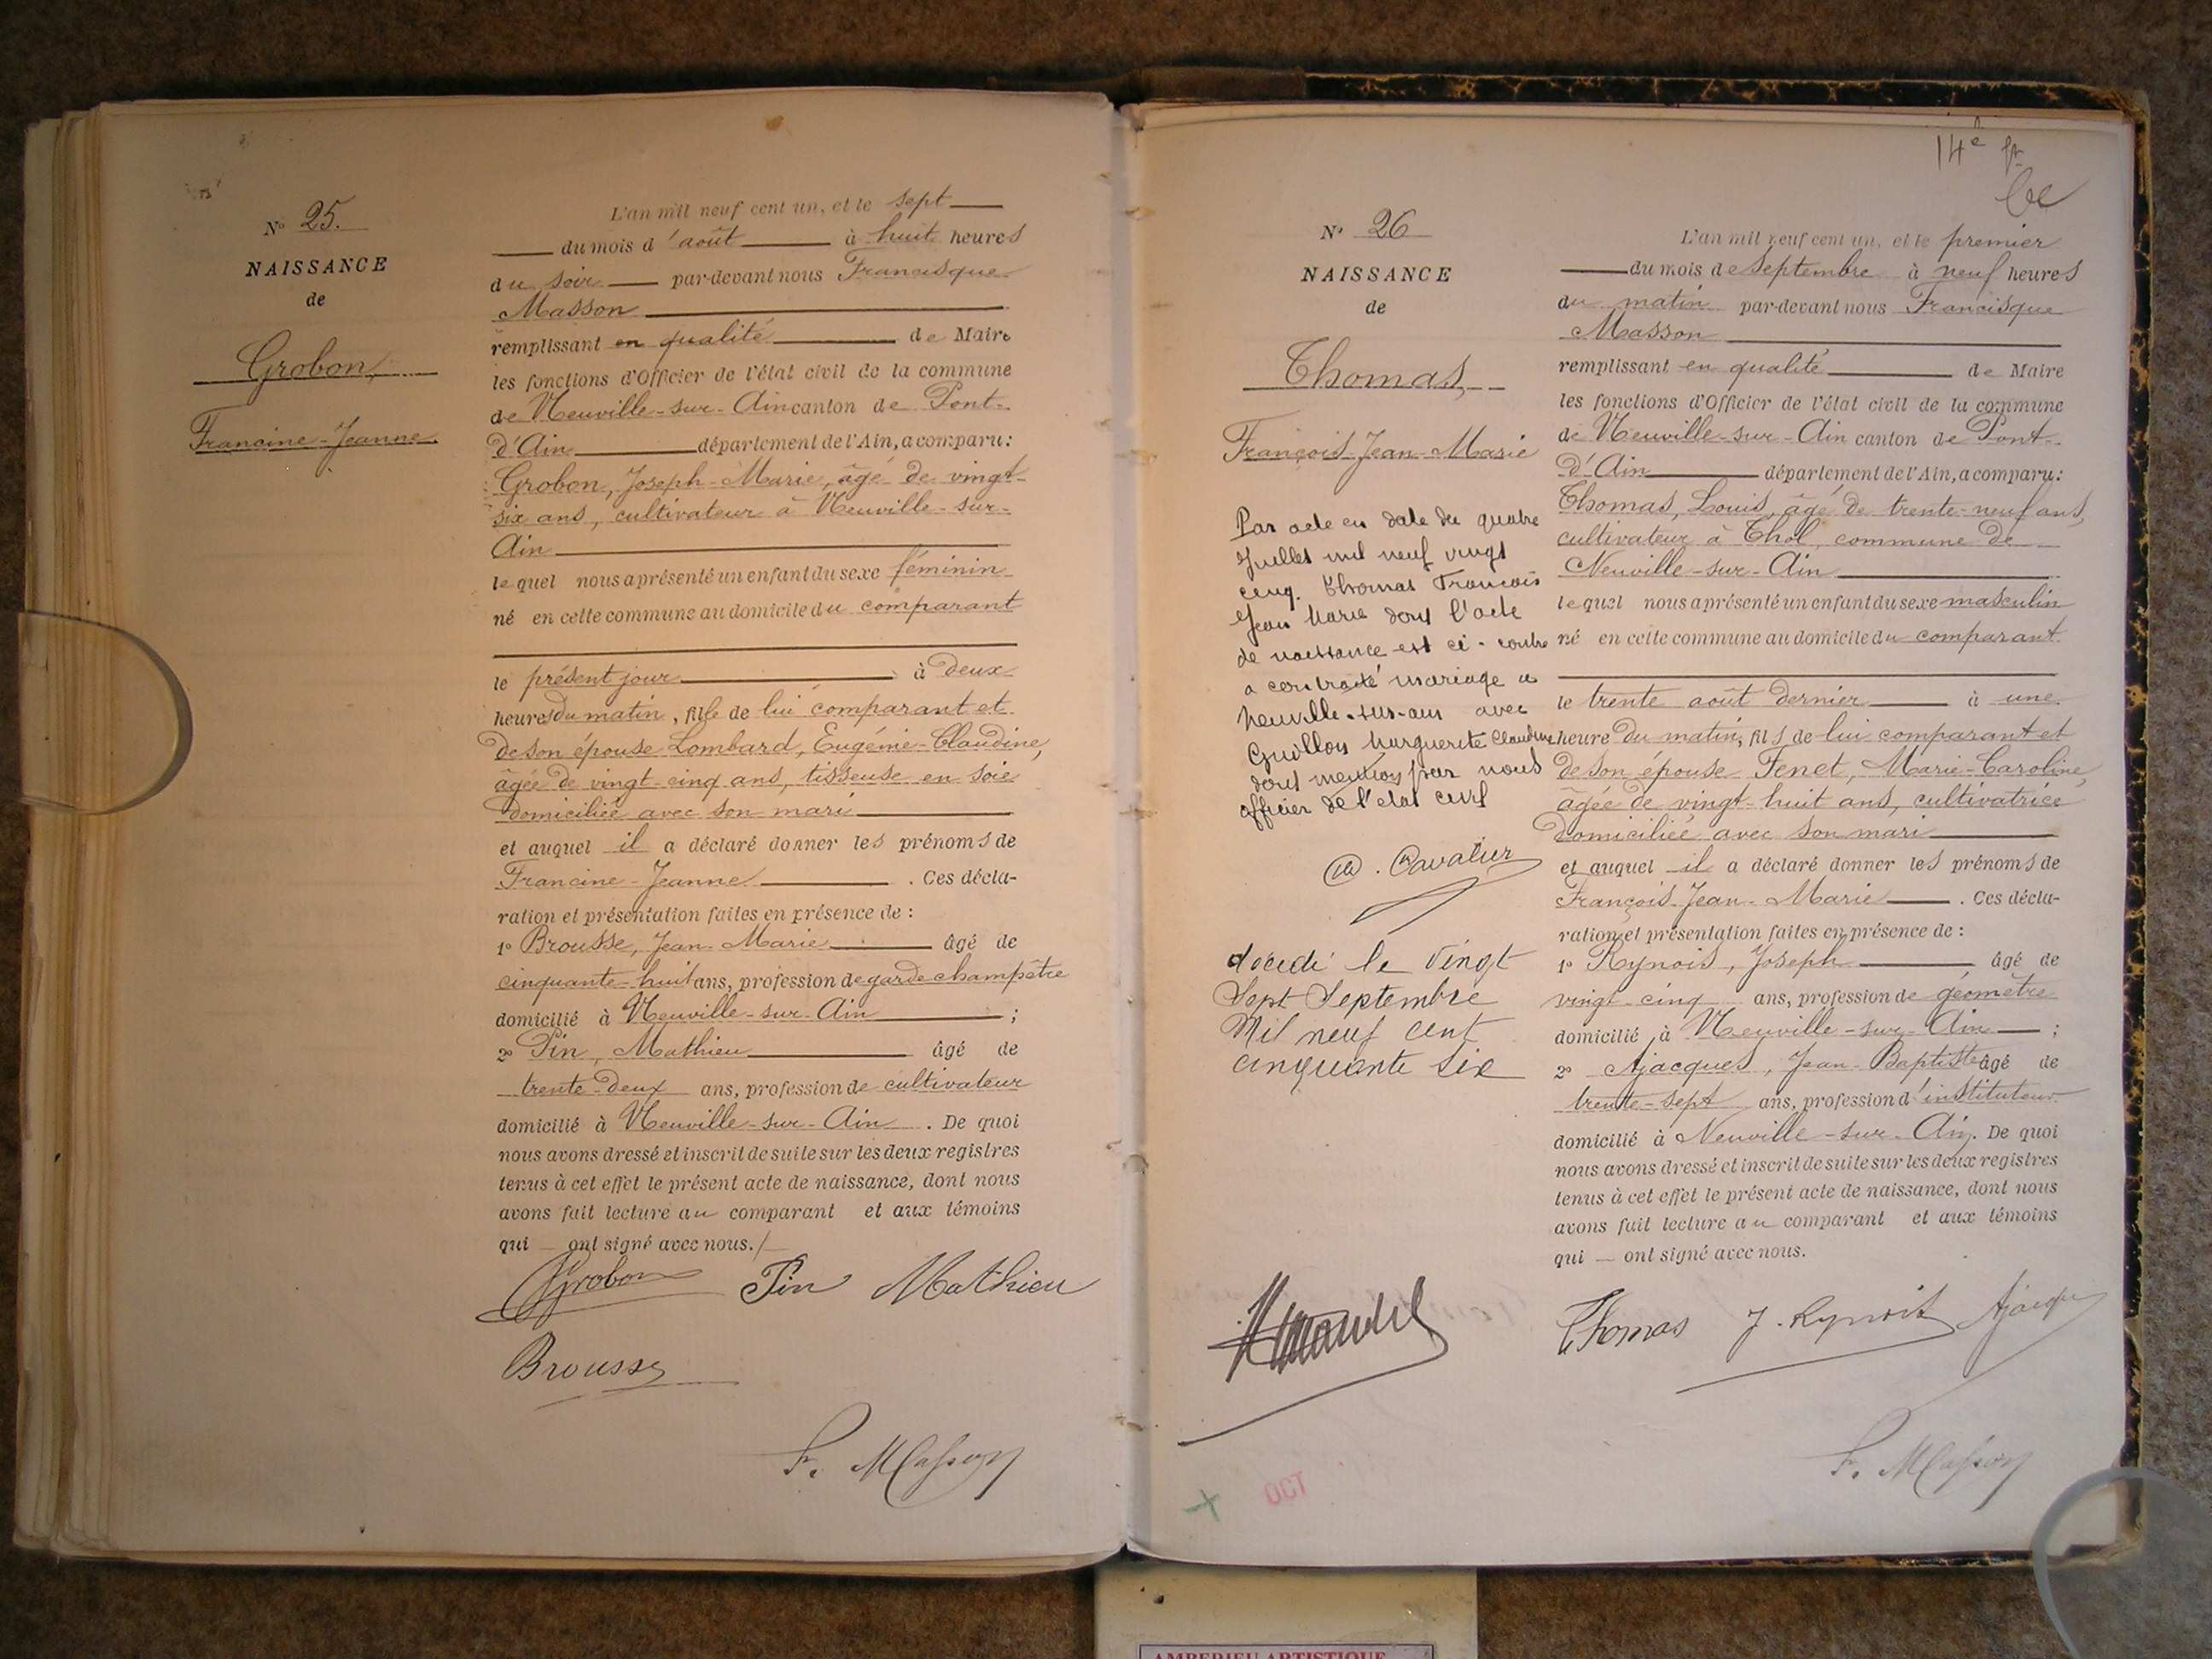 N° 25.
NAISSANCE
de
Grobon,
Francine-Jeanne.
L'an mil neuf cent un, et le sept
du mois d'août à huit heures
du soir par-devant nous Francisque
Masson
remplissant en qualité de Maire
les fonctions d'Officier de l'état civil de la commune
de Neuville-sur-Ain canton de Pont-
d'Ain département de l'Ain, a comparu:
Grobon, Joseph-Marie, âgé de vingt-
six ans, cultivateur à Neuville-sur-
Ain
lequel nous a présenté un enfant du sexe féminin
né en cette commune au domicile du comparant
le présent jour à deux
heures du matin, fille de lui comparant et
de son épouse Lombard, Eugénie-Claudine,
âgée de vingt-cinq ans, tisseuse en soie
domiciliée avec son mari
et auquel il a déclaré donner les prénoms de
Francine-Jeanne. Ces décla-
ration et présentation faites en présence de :
1° Brousse, Jean-Marie âgé de
cinquante-huit ans, profession de garde champêtre
domicilié à Neuville-sur-Ain ;
2° Pin, Mathieu âgé de
trente-deux ans, profession de cultivateur
domicilié à Neuville-sur-Ain. De quoi
nous avons dressé et inscrit de suite sur les deux registres
tenus à cet effet le présent acte de naissance, dont nous
avons fait lecture au comparant et aux témoins
qui ont signé avec nous./
Grobon Pin Mathieu
Brousse
F. Masson
14e
N° 26
NAISSANCE
de
Thomas,
François-Jean-Marie
Par acte en date du quatre
Juillet mil neuf vingt
cinq. Thomas François
Jean Marie dont l'acte
de naissance est ci-contre
a contracté mariage a
Neuville-sur-ain avec
Guillon Marguerite Claudine
dont mention par nous
officier de l'etat civil
Cavalier
décédé le vingt
Sept Septembre
Mil neuf cent
cinquante six
L'an mil neuf cent un, et le premier
du mois de Septembre à neuf heures
du matin par-devant nous Francisque
Masson
remplissant en qualité de Maire
les fonctions d'Officier de l'état civil de la commune
de Neuville-sur-Ain canton de Pont-
d'Ain département de l'Ain, a comparu:
Thomas, Louis, âgé de trente-neuf ans,
cultivateur à Thol, commune de
Neuville-sur-Ain
lequel nous a présenté un enfant du sexe masculin
né en cette commune au domicile du comparant
le trente août dernier à une
heure du matin, fils de lui comparant et
de son épouse Fenet, Marie-Caroline,
âgée de vingt-huit ans, cultivatrice
domiciliée avec son mari
et auquel il a déclaré donner les prénoms de
François-Jean-Marie. Ces décla-
ration et présentation faites en présence de :
1° Rynois, Joseph âgé de
vingt-cinq ans, profession de géomètre
domicilié à Neuville-sur-Ain ;
2° Ajacques, Jean-Baptiste âgé de
trente-sept ans, profession d'instituteur
domicilié à Neuville-sur-Ain. De quoi
nous avons dressé et inscrit de suite sur les deux registres
tenus à cet effet le présent acte de naissance, dont nous
avons fait lecture au comparant et aux témoins
qui ont signé avec nous.
Thomas J. Rynois Ajacques
F. Masson
100
AMBERIEU ARTISTIQUE